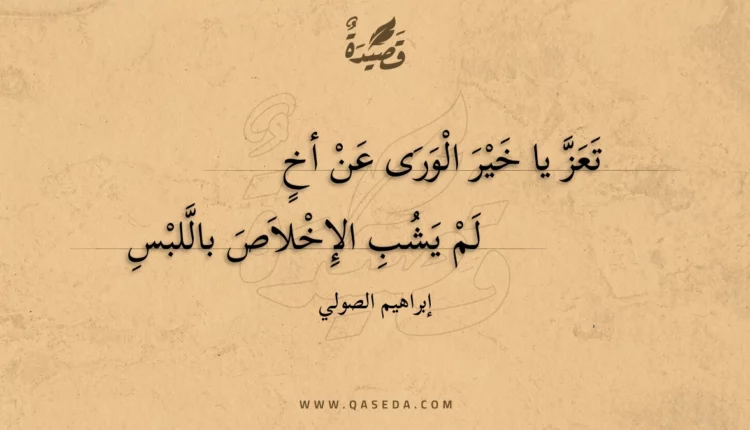 قَصِيْدَةٌ
تَعَزَّ يا خَيْرَ الْوَرَى عَنْ أخٍ
لَمْ يَشُبِ الإِخْلاَصَ باللَّبْسِ
إبراهيم الصولي
WWW.QASEDA.COM